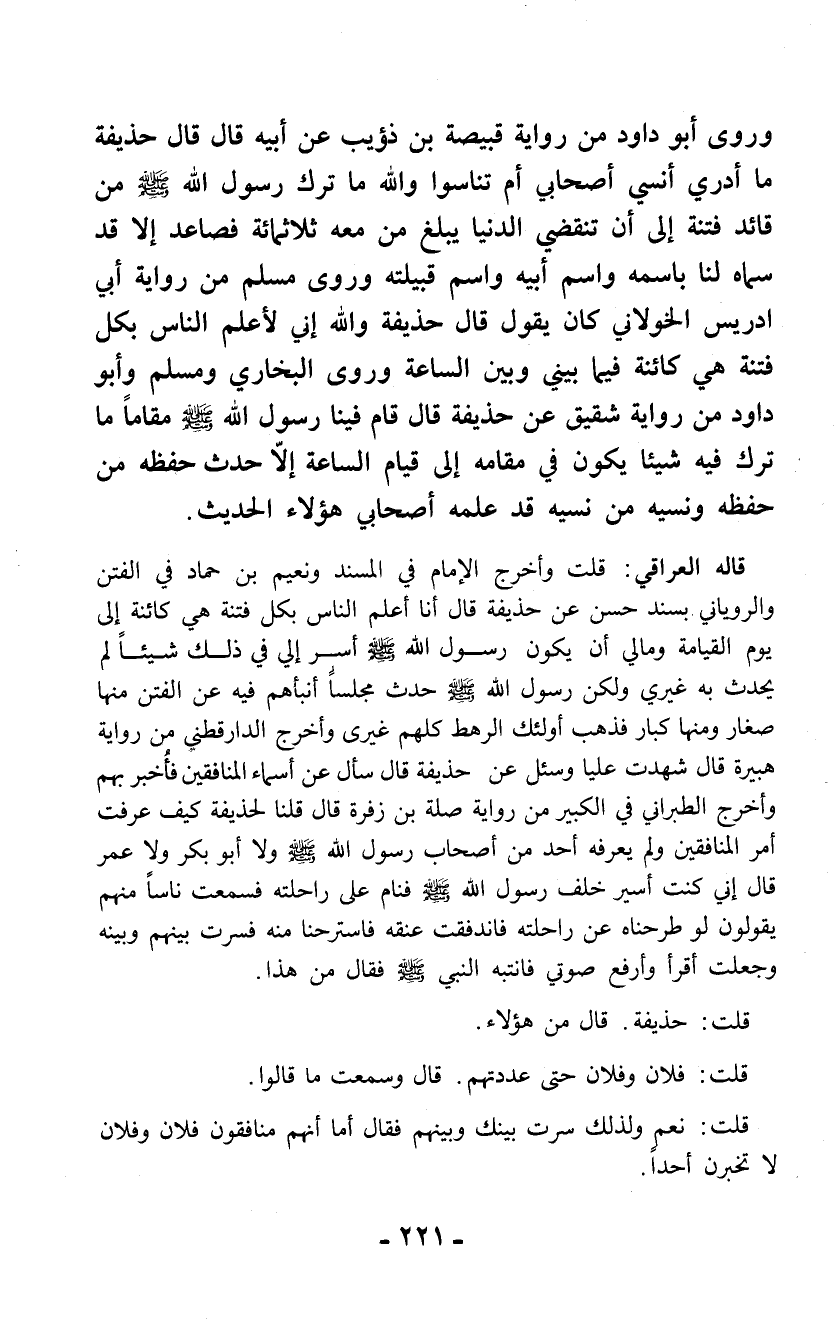 وروى أبو داود من رواية قبيصة بن ذؤيب عن أبيه قال قال حذيفة
ما أدري أنسي أصحابي أم تناسوا والله ما ترك رسول الله ﷺ من
قائد فتنة إلى أن تنقضي الدنيا يبلغ من معه ثلاثمائة فصاعد إلا قد
سماه لنا باسمه واسم أبيه واسم قبيلته وروى مسلم من رواية أبي
ادريس الخولاني كان يقول قال حذيفة والله إني لأعلم الناس بكل
فتنة هي كائنة فيما بيني وبين الساعة وروى البخاري ومسلم وأبو
داود من رواية شقيق عن حذيفة قال قام فينا رسول الله ﷺ مقاماً ما
ترك فيه شيئا يكون في مقامه إلى قيام الساعة إلاّ حدث حفظه من
حفظه ونسيه من نسيه قد علمه أصحابي هؤلاء الحديث.
قاله العراقي: قلت وأخرج الإمام في المسند ونعيم بن حماد في الفتن
والروياني بسند حسن عن حذيفة قال أنا أعلم الناس بكل فتنة هي كائنة إلى
يوم القيامة ومالي أن يكون رسول الله ﷺ أسر إلي في ذلك شيئاً لم
يحدث به غيري ولكن رسول الله ﷺ حدث مجلساً أنبأهم فيه عن الفتن منها
صغار ومنها كبار فذهب أولئك الرهط كلهم غيرى وأخرج الدارقطني من رواية
هبيرة قال شهدت عليا وسئل عن حذيفة قال سأل عن أسماء المنافقين فأُخبر بهم
وأخرج الطبراني في الكبير من رواية صلة بن زفرة قال قلنا لحذيفة كيف عرفت
أمر المنافقين ولم يعرفه أحد من أصحاب رسول الله ﷺ ولا أبو بكر ولا عمر
قال إني كنت أسير خلف رسول الله ﷺ فنام على راحلته فسمعت ناساً منهم
يقولون لو طرحناه عن راحلته فاندفقت عنقه فاسترحنا منه فسرت بينهم وبينه
وجعلت أقرأ وأرفع صوتي فانتبه النبي ﷺ فقال من هذا.
قلت: حذيفة. قال من هؤلاء.
قلت: فلان وفلان حتى عددتهم. قال وسمعت ما قالوا.
قلت: نعم ولذلك سرت بينك وبينهم فقال أما أنهم منافقون فلان وفلان
لا تخبرن أحداً.
- ٢٢١ -